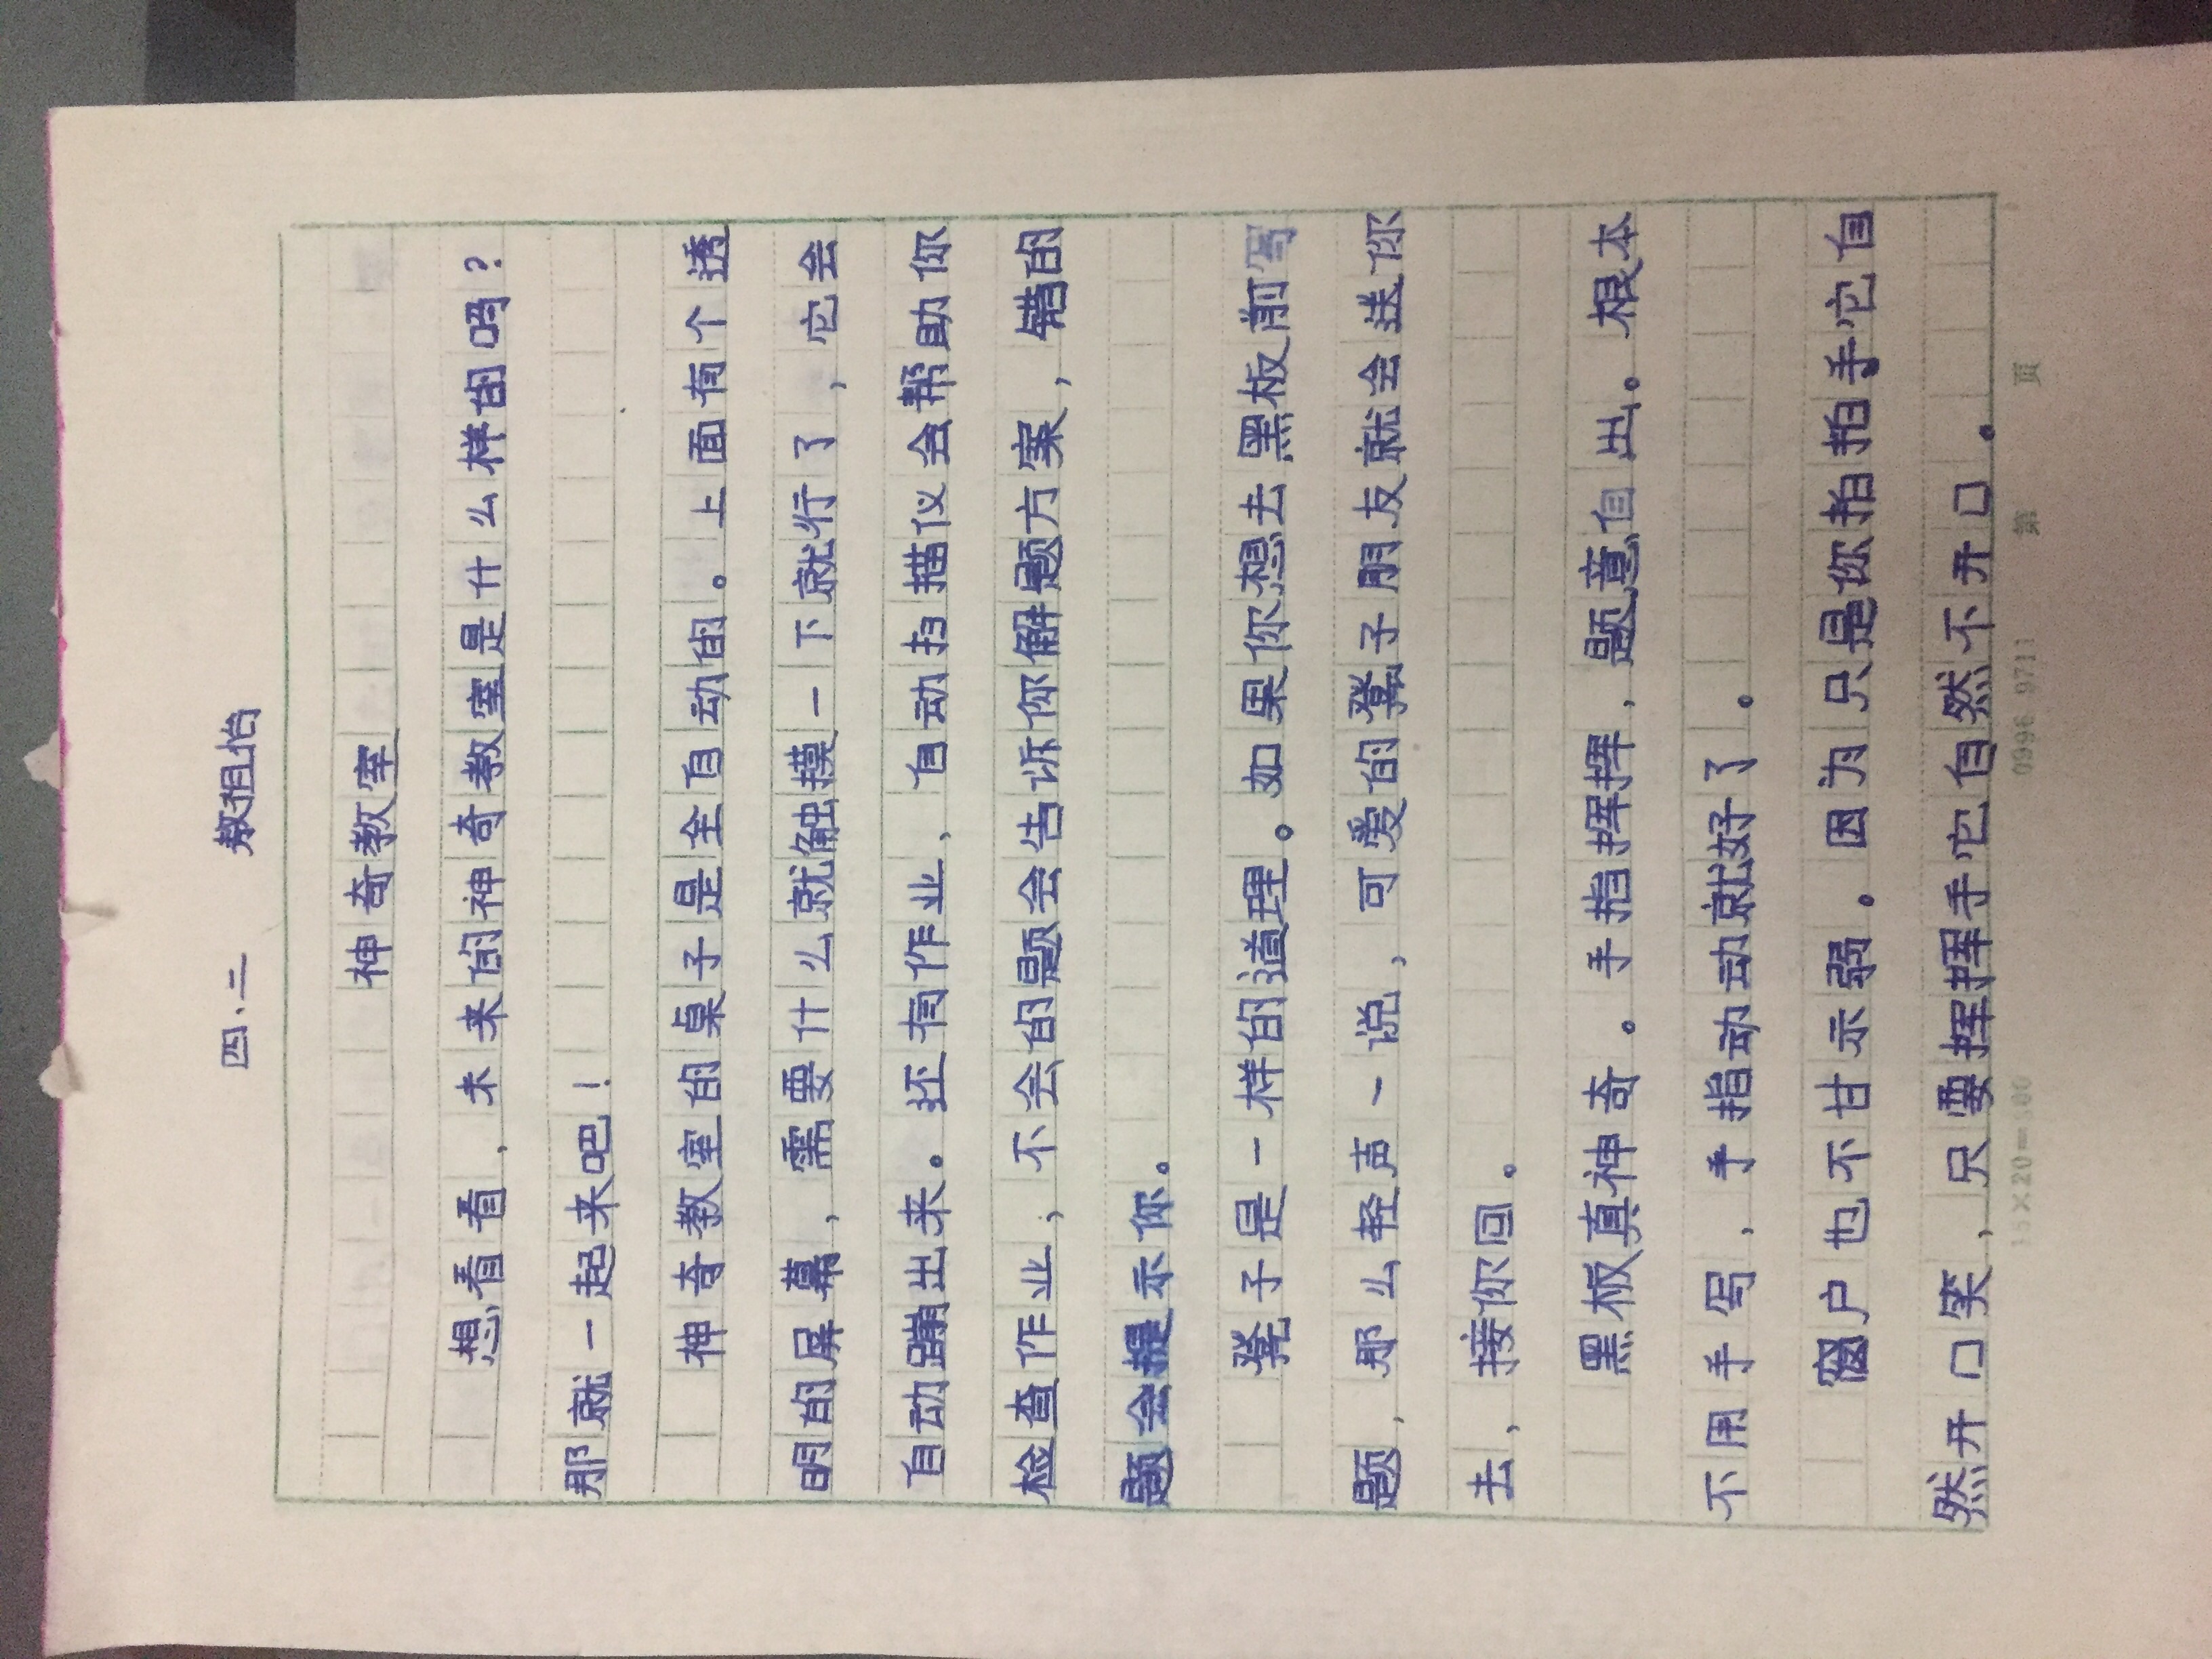 四、二 敖祖怡
神奇教室
想看看，未来的神奇教室是什么样的吗？
那就一起来吧！
神奇教室的桌子是全自动的。上面有个透
明的屏幕，需要什么就触摸一下就行了，它会
自动蹦出来。还有作业、自动扫描仪会帮助你
检查作业，不会的题会告诉你解题方案，错的
题会提示你。
凳子是一样的道理。如果你想去黑板前写
题，那么轻声一说，可爱的凳子朋友就会送你
去，接你回。
黑板真神奇。手指挥挥，题意自出。根本
不用手写，手指动动就好了。
窗户也不甘示弱。因为只是你拍拍手它自
然开口笑，只要挥挥手它自然不开口。
15×20=300 0996 9711 第 页